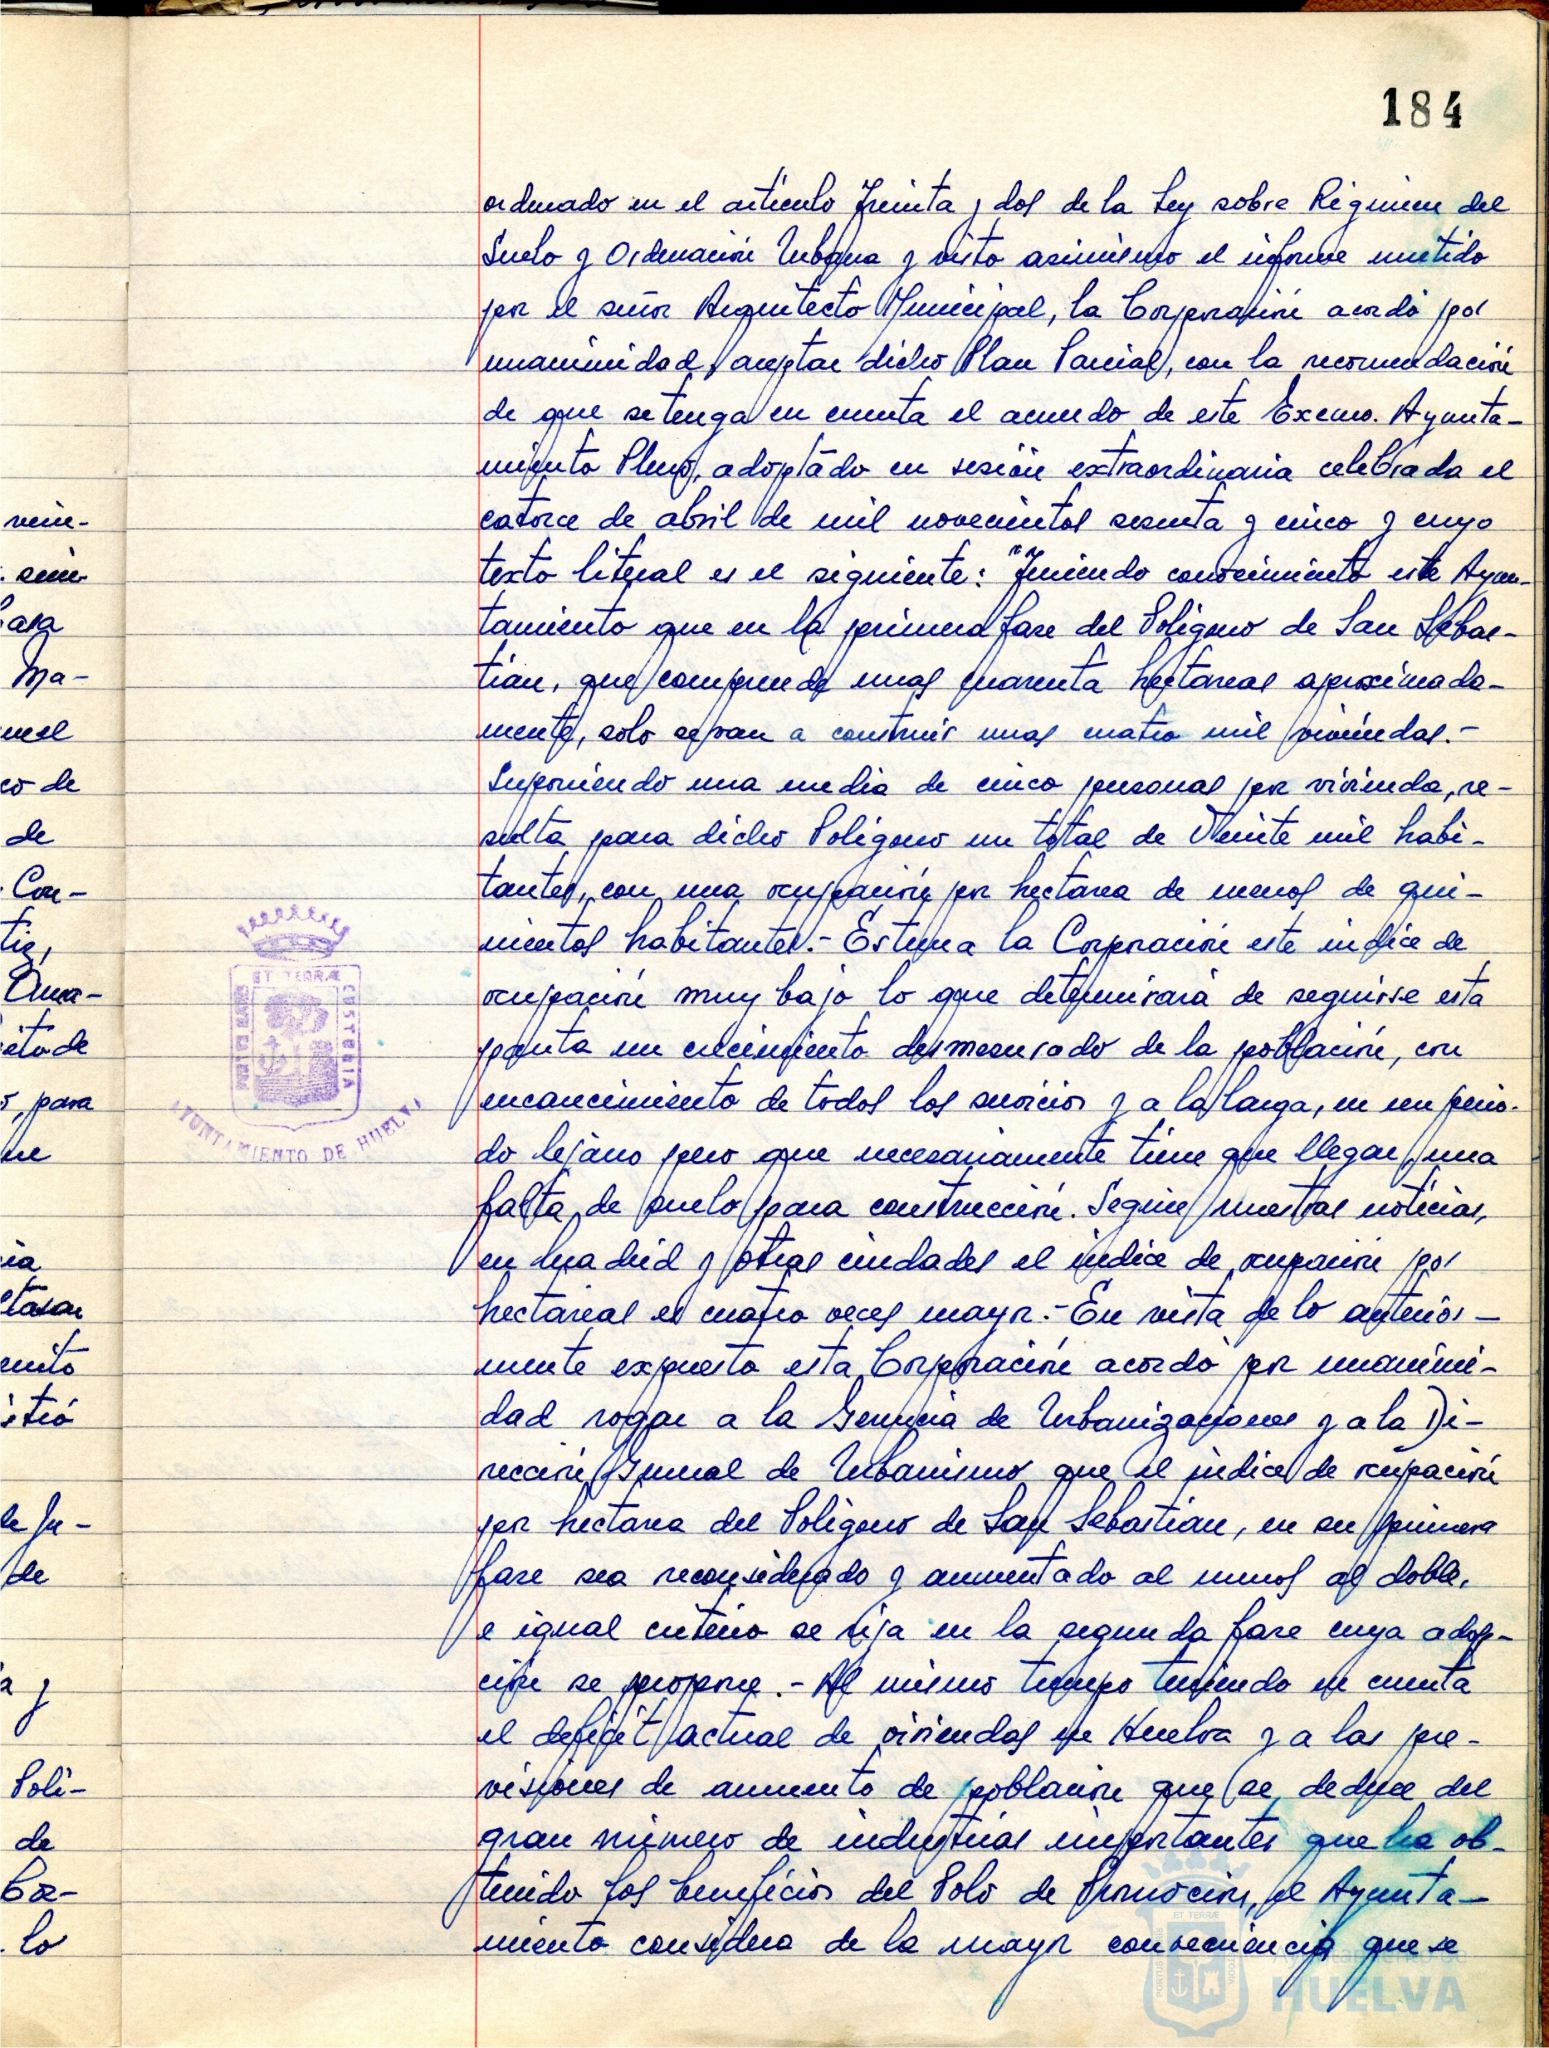 184
ordenado en el artículo Treinta y dos de la Ley sobre Régimen del
Suelo y Ordenación Urbana y visto asimismo el informe emitido
por el señor Arquitecto Municipal, la Corporación acordó por
unanimidad, aceptar dicho Plan Parcial, con la recomendación
de que se tenga en cuenta el acuerdo de este Excmo. Ayunta-
miento Pleno, adoptado en sesión extraordinaria celebrada el
catorce de abril de mil novecientos sesenta y cinco y cuyo
texto literal es el siguiente: "Teniendo conocimiento este Ayun-
tamiento que en la primera fase del Polígono de San Sebas-
tián, que comprende unas cuarenta hectáreas aproximada-
mente, solo se van a construir unas cuatro mil viviendas.-
Suponiendo una media de cinco personas por vivienda, re-
sulta para dicho Polígono un total de Veinte mil habi-
tantes, con una ocupación por hectarea de menos de qui-
nientos habitantes.- Estima la Corporación este indice de
ocupación muy bajo lo que determinará de seguirse esta
pauta un crecimiento desmesurado de la población, con
encarecimiento de todos los servicios y a la larga, en un perio-
do lejano pero que necesariamente tiene que llegar, una
falta de suelo para construcción. Según nuestras noticias,
en Madrid y otras ciudades el indice de ocupación por
hectareas es cuatro veces mayor.- En vista de lo anterior-
mente expuesto esta Corporación acordó por unanimi-
dad rogar a la Gerencia de Urbanizaciones y a la Di-
rección General de Urbanismo que el indice de ocupación
por hectarea del Polígono de San Sebastián, en su primera
fase sea reconsiderado y aumentado al menos al doble,
e igual criterio se siga en la segunda fase cuya adop-
ción se propone.- Al mismo tiempo teniendo en cuenta
el deficit actual de viviendas en Huelva y a las pre-
visiones de aumento de población que se deduce del
gran número de industrias importantes que ha ob-
tenido los beneficios del Polo de Promoción, el Ayunta-
miento considera de la mayor conveniencia que se
vein-
Ma-
co de
de
Con-
eto de
, para
de Ju-
de
y
Polí-
de
Cor-
lo
ET TERRÆ
CUSTODIA
AYUNTAMIENTO DE HUELVA
Ayuntamiento de
HUELVA